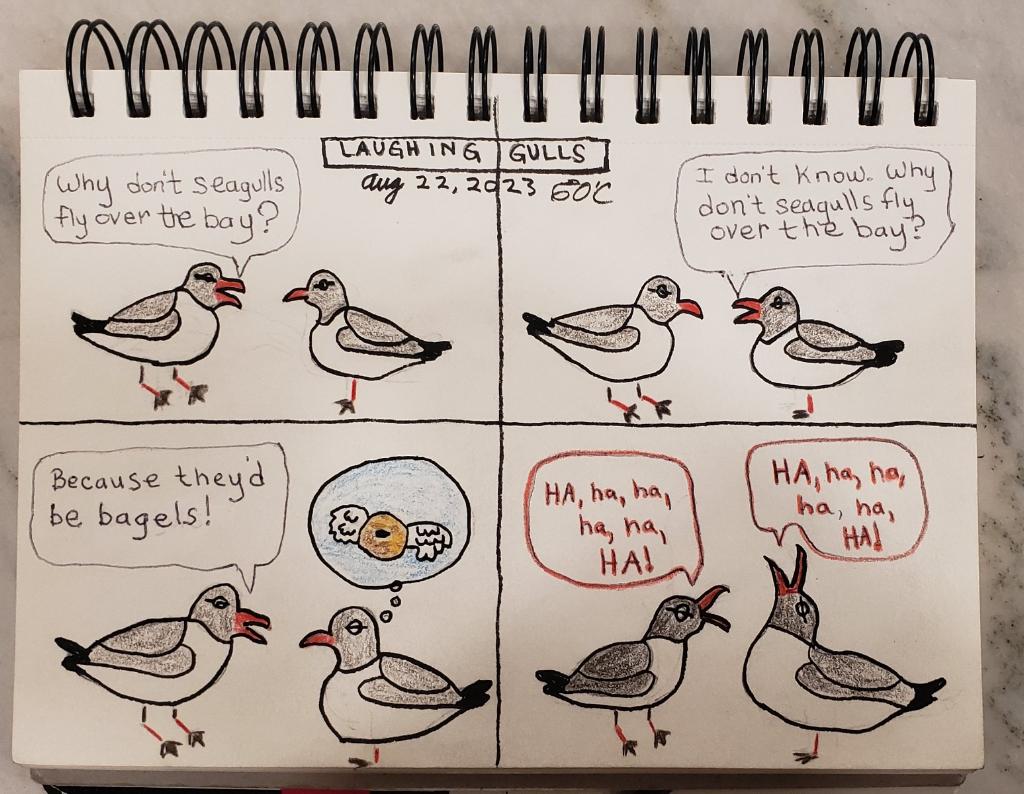 LAUGHING GULLS
Aug 22, 2023
Why don't seagulls
fly over the bay?
I don't know. Why
don't seagulls fly
over the bay?
Because they'd
be bagels!
HA, ha, ha,
ha, ha,
HA!
HA, ha, ha,
ha, ha,
HA!